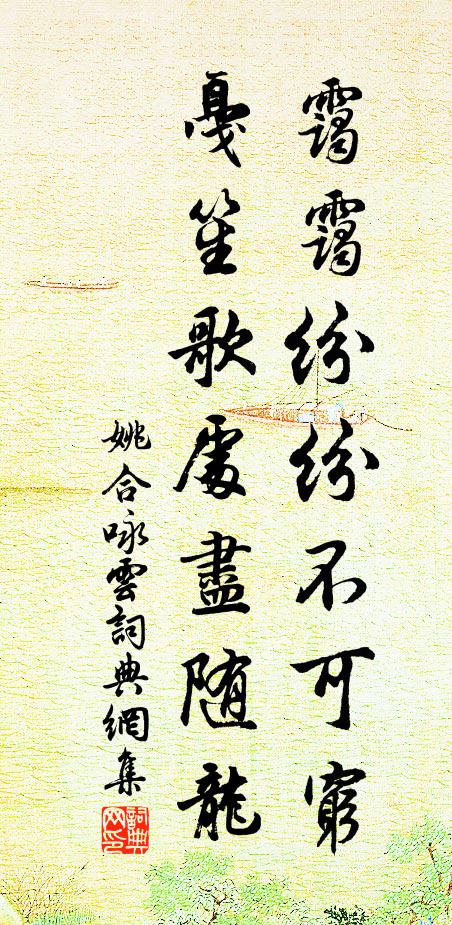 靄靄紛紛不可窮
戛笙歌處盡隨龍
姚合咏雲詞典網集
詞典網印